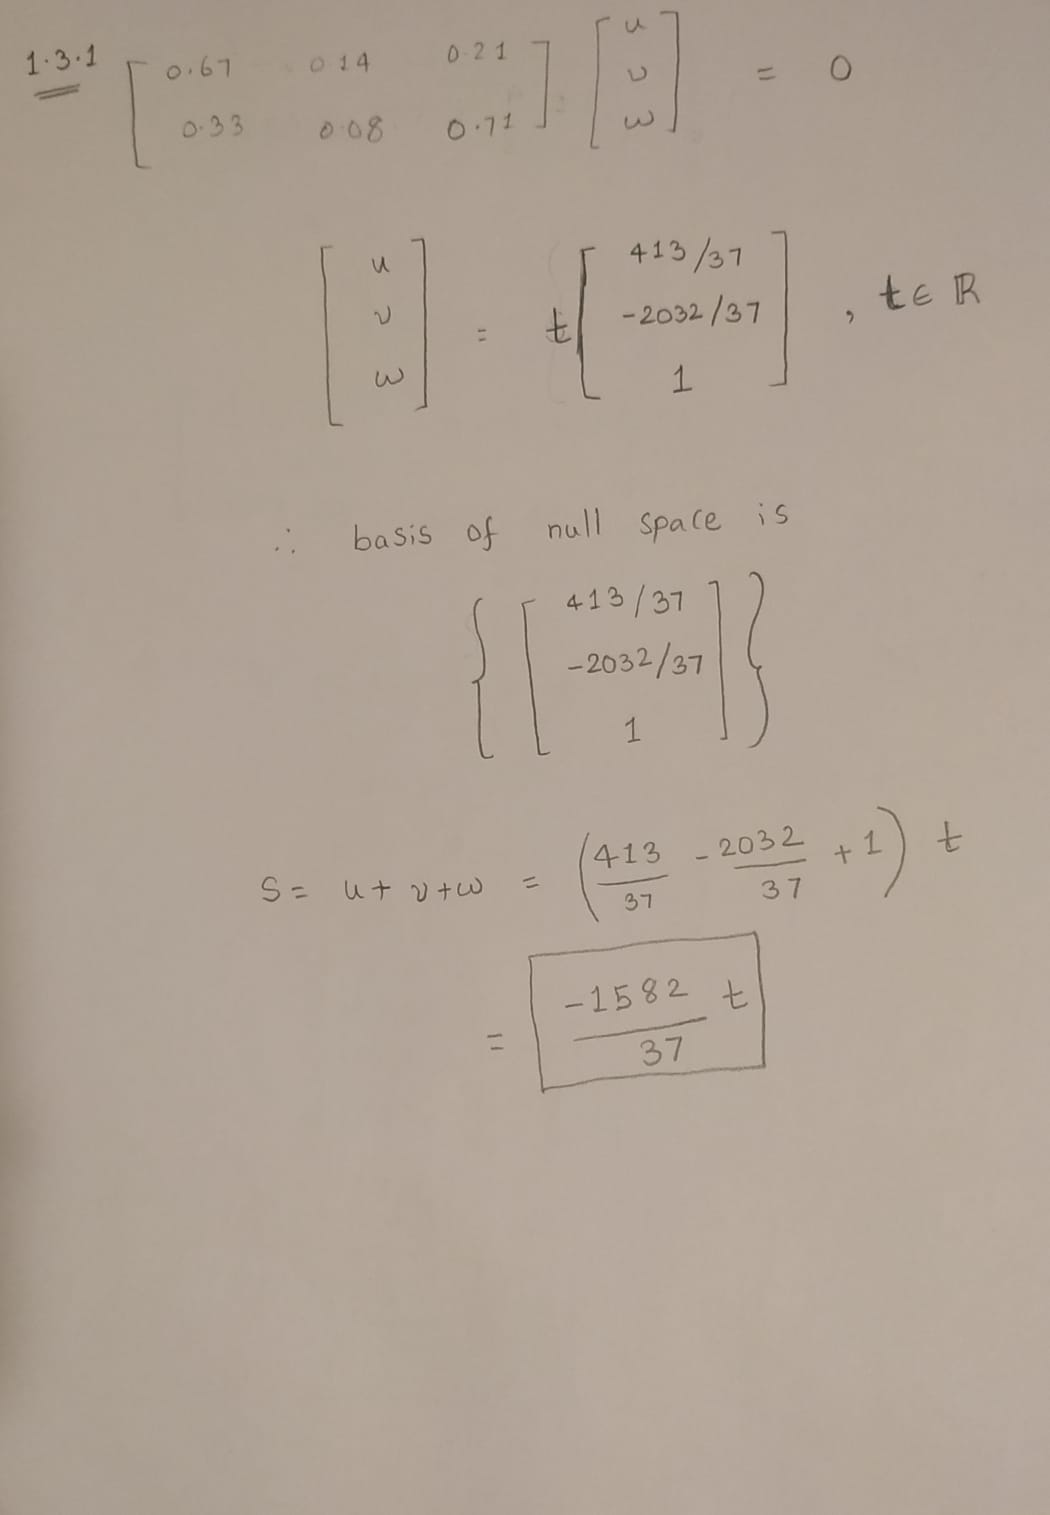 1.3.1 [ 0.67 0.14 0.21 ] [ u ] = 0
[ 0.33 0.08 0.71 ] [ v ]
[ w ]
[ u ] = t [ 413/37 ] , t ∈ ℝ
[ v ] [ -2032/37 ]
[ w ] [ 1 ]
∴ basis of null space is
{ [ 413/37 ] }
[ -2032/37 ]
[ 1 ]
S = u + v + w = ( 413/37 - 2032/37 + 1 ) t
= -1582/37 t